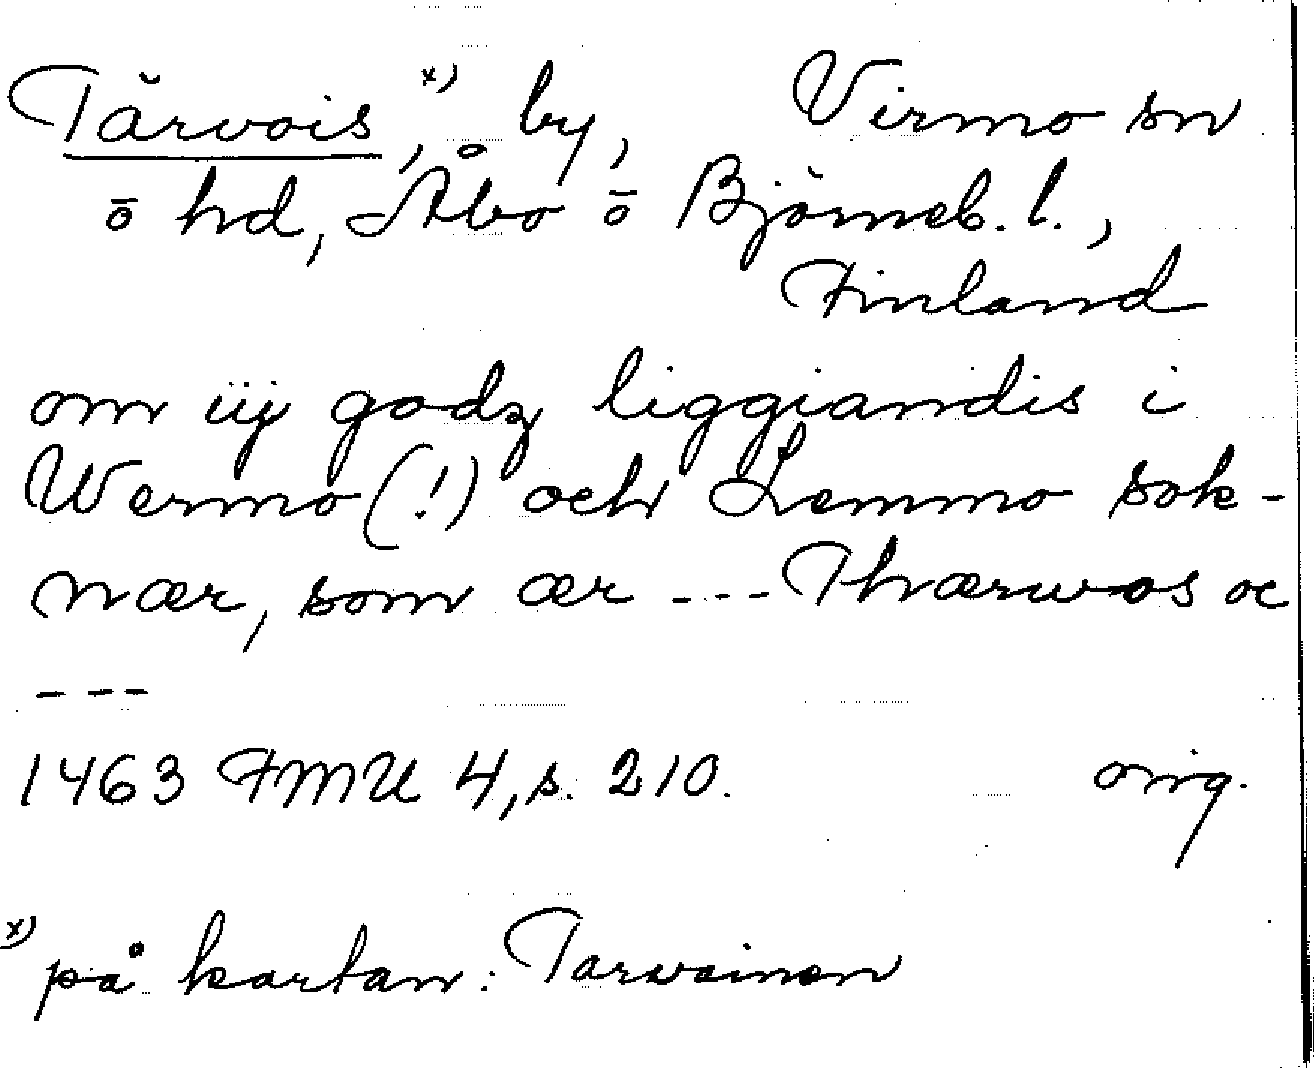 Tärvois x), by, Virmo sn
o hd, Åbo o Björneb. l.,
Finland
om iij godz liggiandis i
Wermo (!) och Lemmo sok-
nær, som ær --- Thærwos oc
---
1463 FMU 4, s. 210. orig.
x) på kartan: Tarvainen